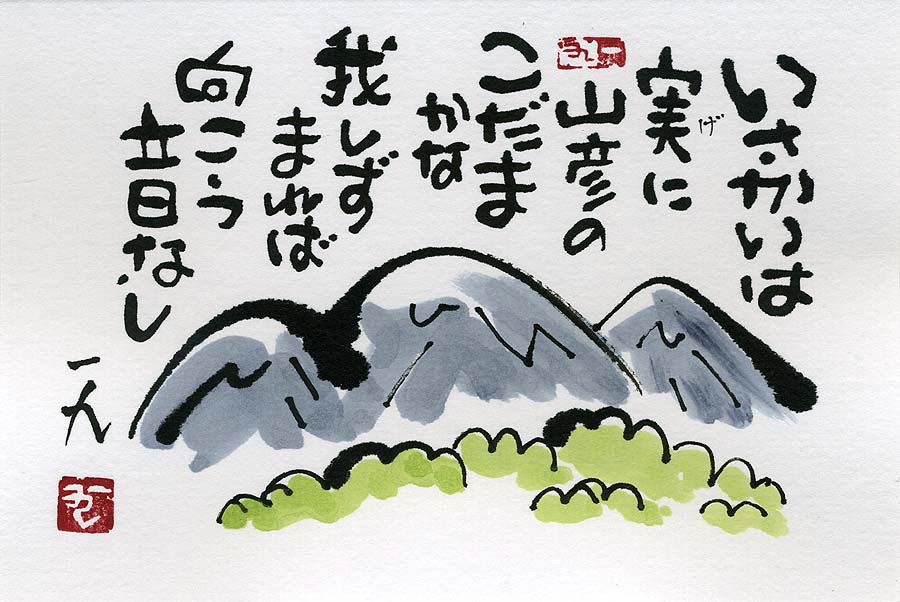 いさかいは
実に
げ
山彦の
こだま
かな
我しず
まれば
向こう
音なし
一九